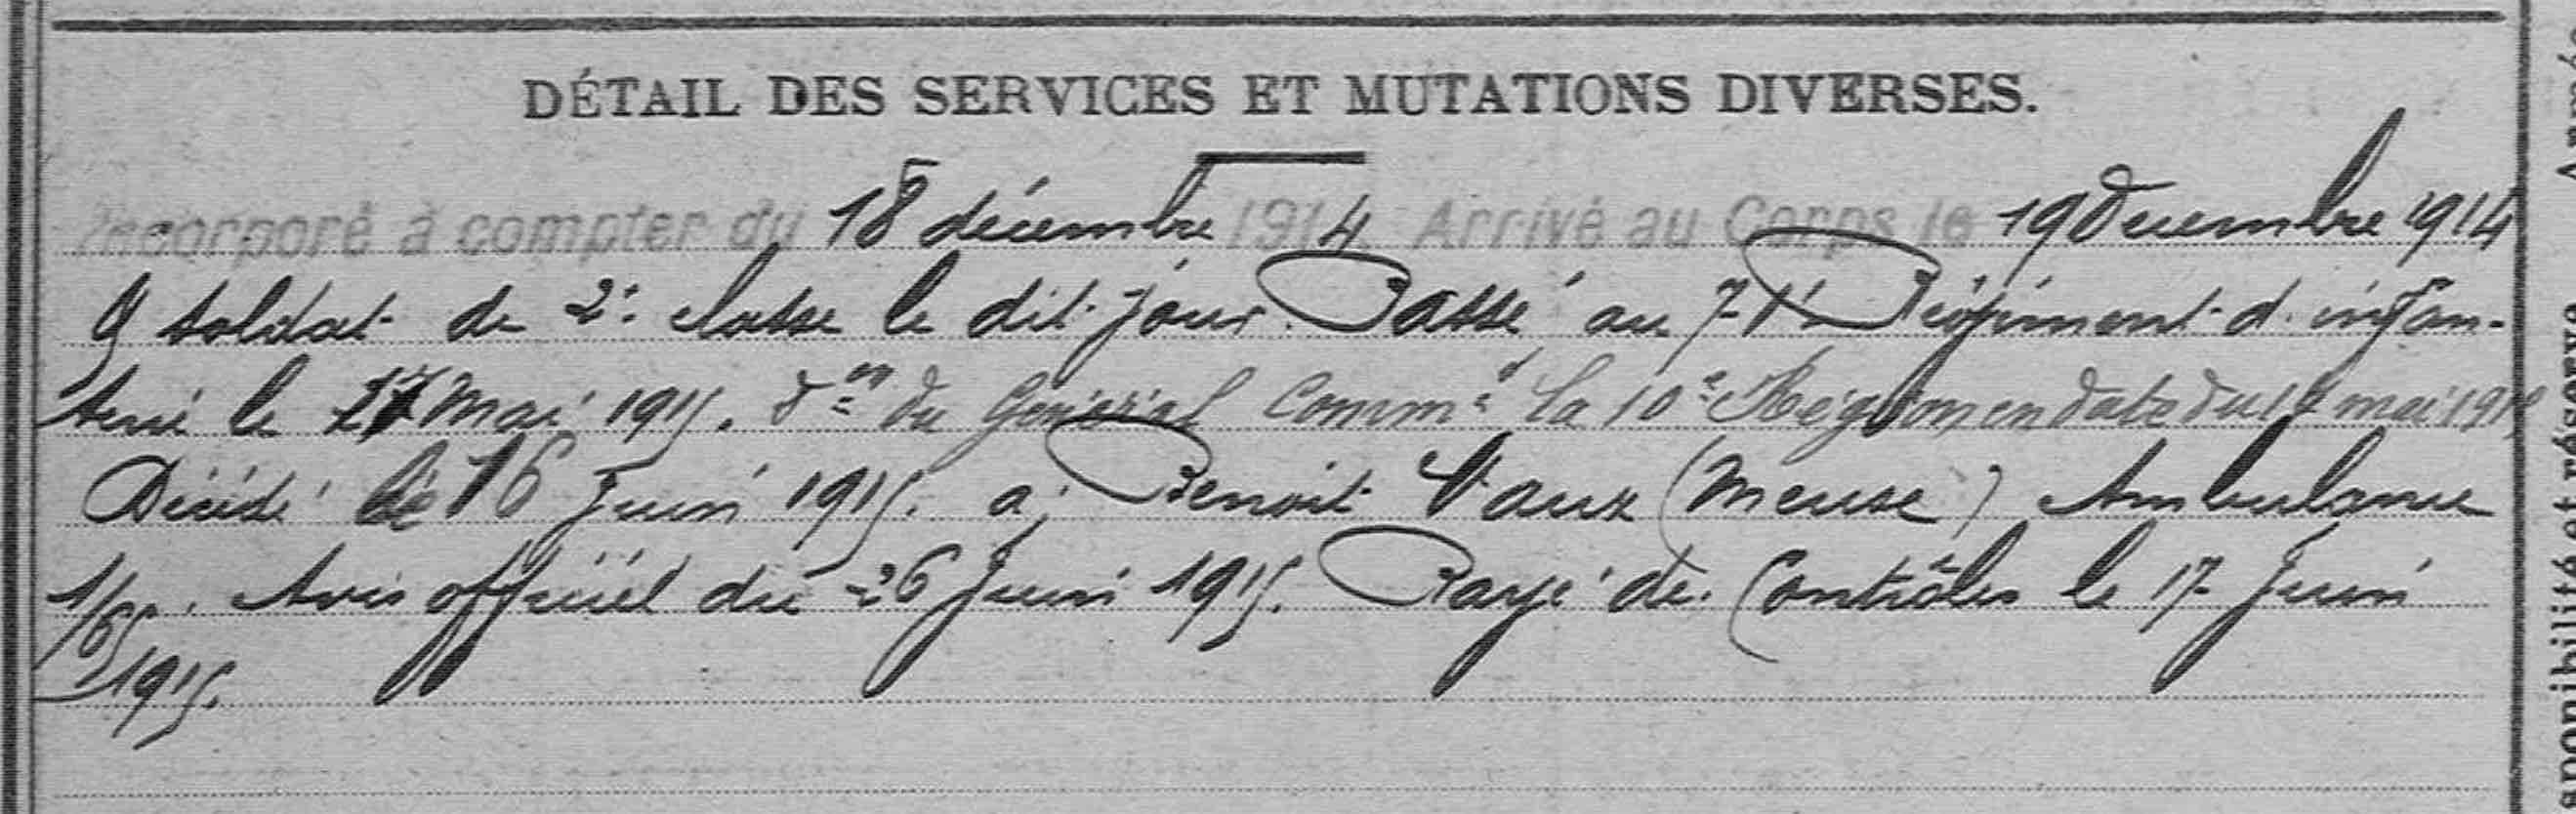 DÉTAIL DES SERVICES ET MUTATIONS DIVERSES.
Incorporé à compter du 18 décembre 1914. Arrivé au Corps le 19 Décembre 1914
soldat de 2e classe le dit jour. Passé au Régiment d'infan-
terie le Mai 1915. don du Général Commt la 10e Région en date du mai 1915
Décédé le 16 Juin 1915. à Benoit Vaux (Meuse) Ambulance
1/65. Avis officiel du 26 Juin 1915. Rayé des Contrôles le 17 Juin
1915.